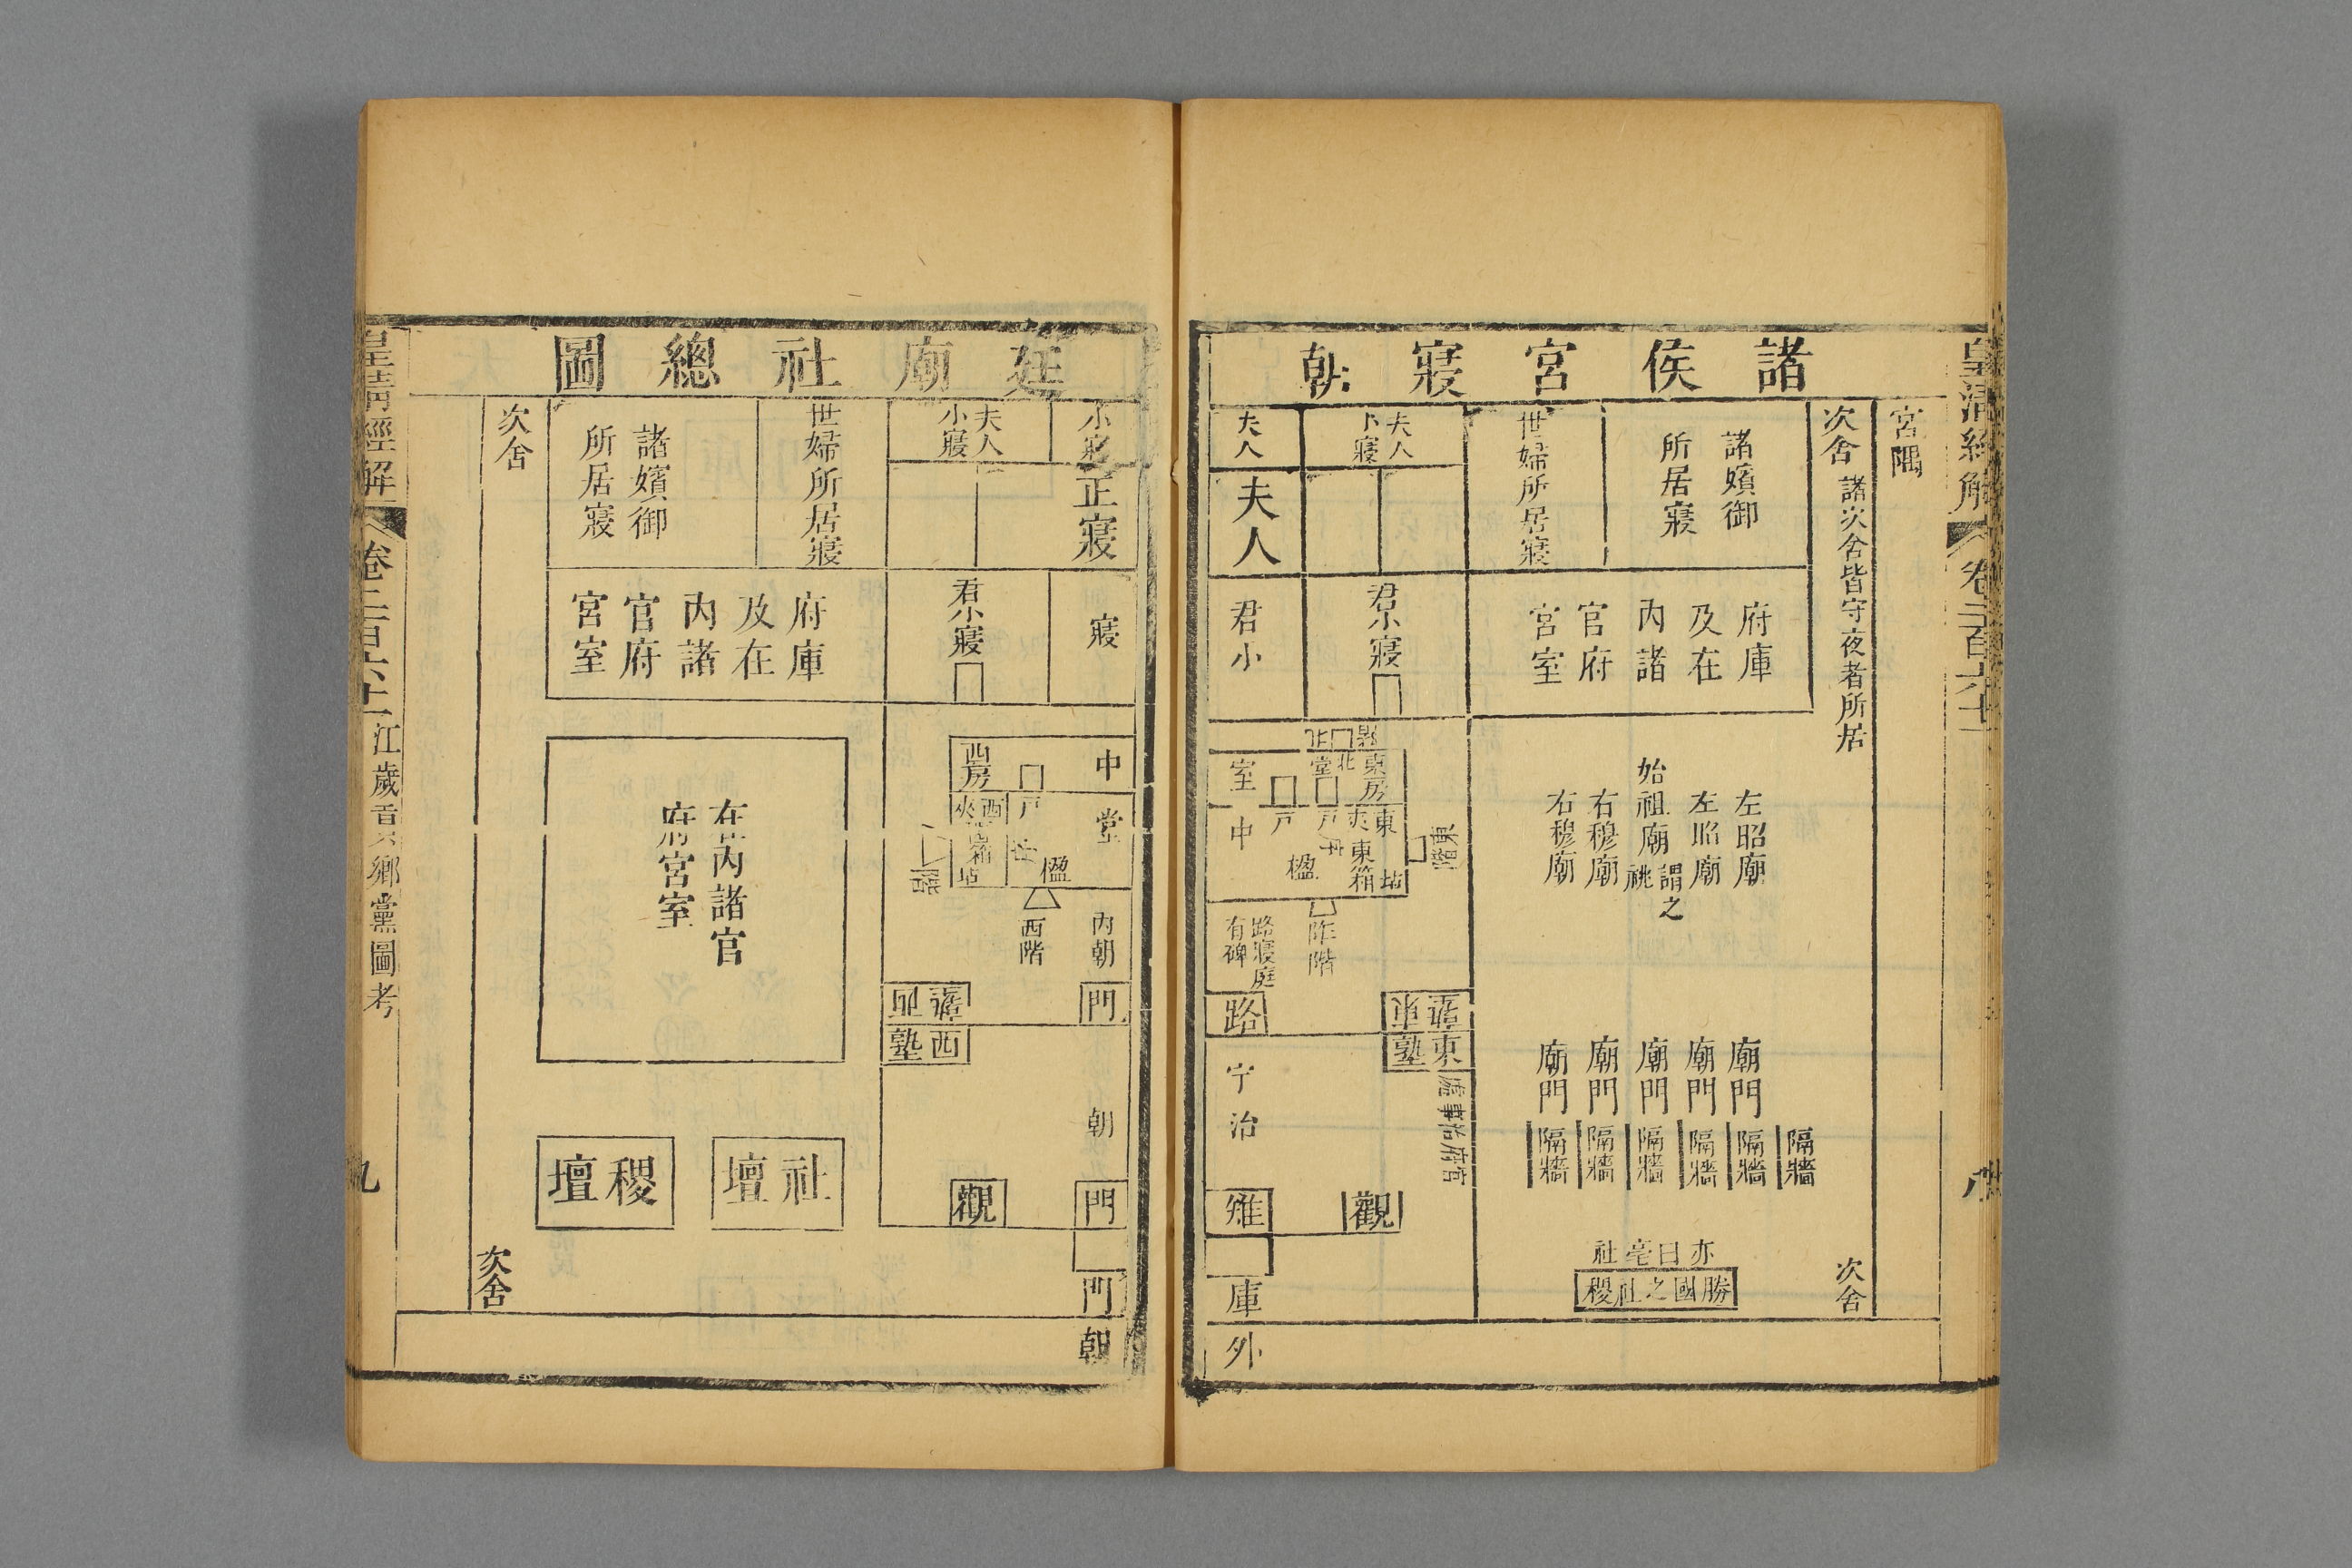 諸侯宮寢朝
宮隅
次舍
諸次舍皆守夜者所居
諸嬪御
所居寢
世婦所居寢
夫人
小寢
夫人
夫人
府庫
及在
內諸
官府
宮室
君小寢
君小
左昭廟
左昭廟
始祖廟
謂之
祧
右穆廟
右穆廟
北堂
東房
室
戶
戶
東夾
東箱
坫
中
楹
東階
阼階
路寢庭
有碑
路
東塾
宁治
官府治事處
廟門
廟門
廟門
廟門
廟門
隔牆
隔牆
隔牆
隔牆
隔牆
隔牆
雉
觀
亦曰亳社
勝國之社稷
次舍
庫
外
皇清經解
卷二百六十一
八
廷廟社總圖
小寢
夫人
小寢
世婦所居寢
諸嬪御
所居寢
次舍
正寢
寢
君小寢
府庫
及在
內諸
官府
宮室
中
西房
堂
戶
西夾
西箱
坫
楹
西階
階
內朝
在內諸官
府宮室
門
西塾
朝
門
觀
社壇
稷壇
次舍
門
朝
皇清經解
卷二百六十一
江歲貢鄉黨圖考
九